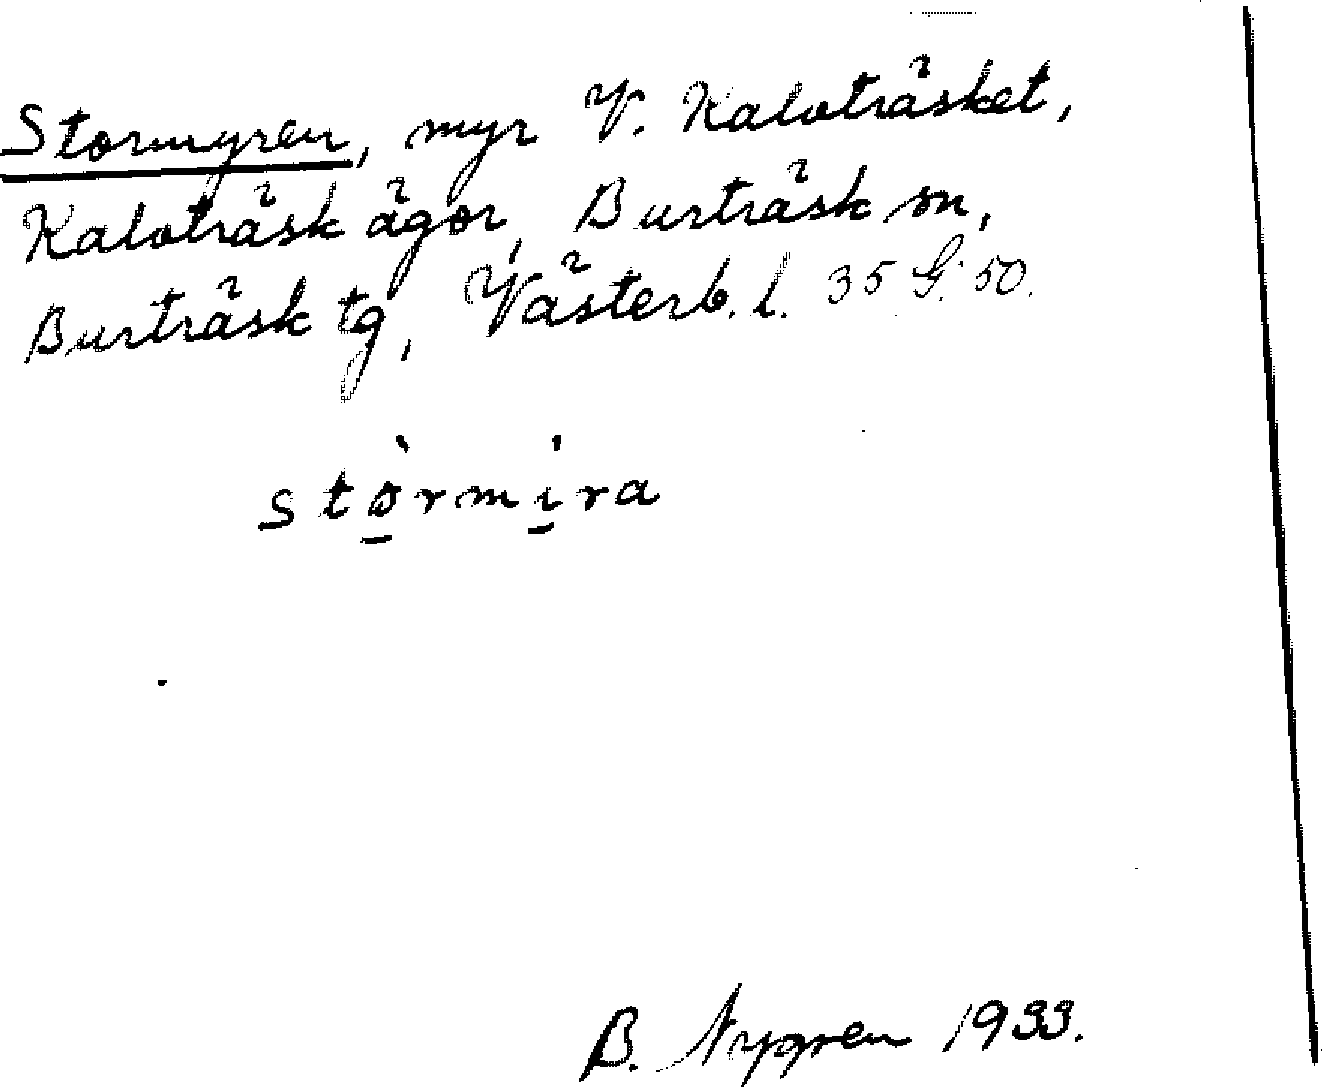 Stormyren, myr V. Kalvträsket,
Kalvträsk ägor, Burträsk sn,
Burträsk tg, Västerb. l. 35 G. 50.
stò̱rmí̱ra
B. Nygren 1933.